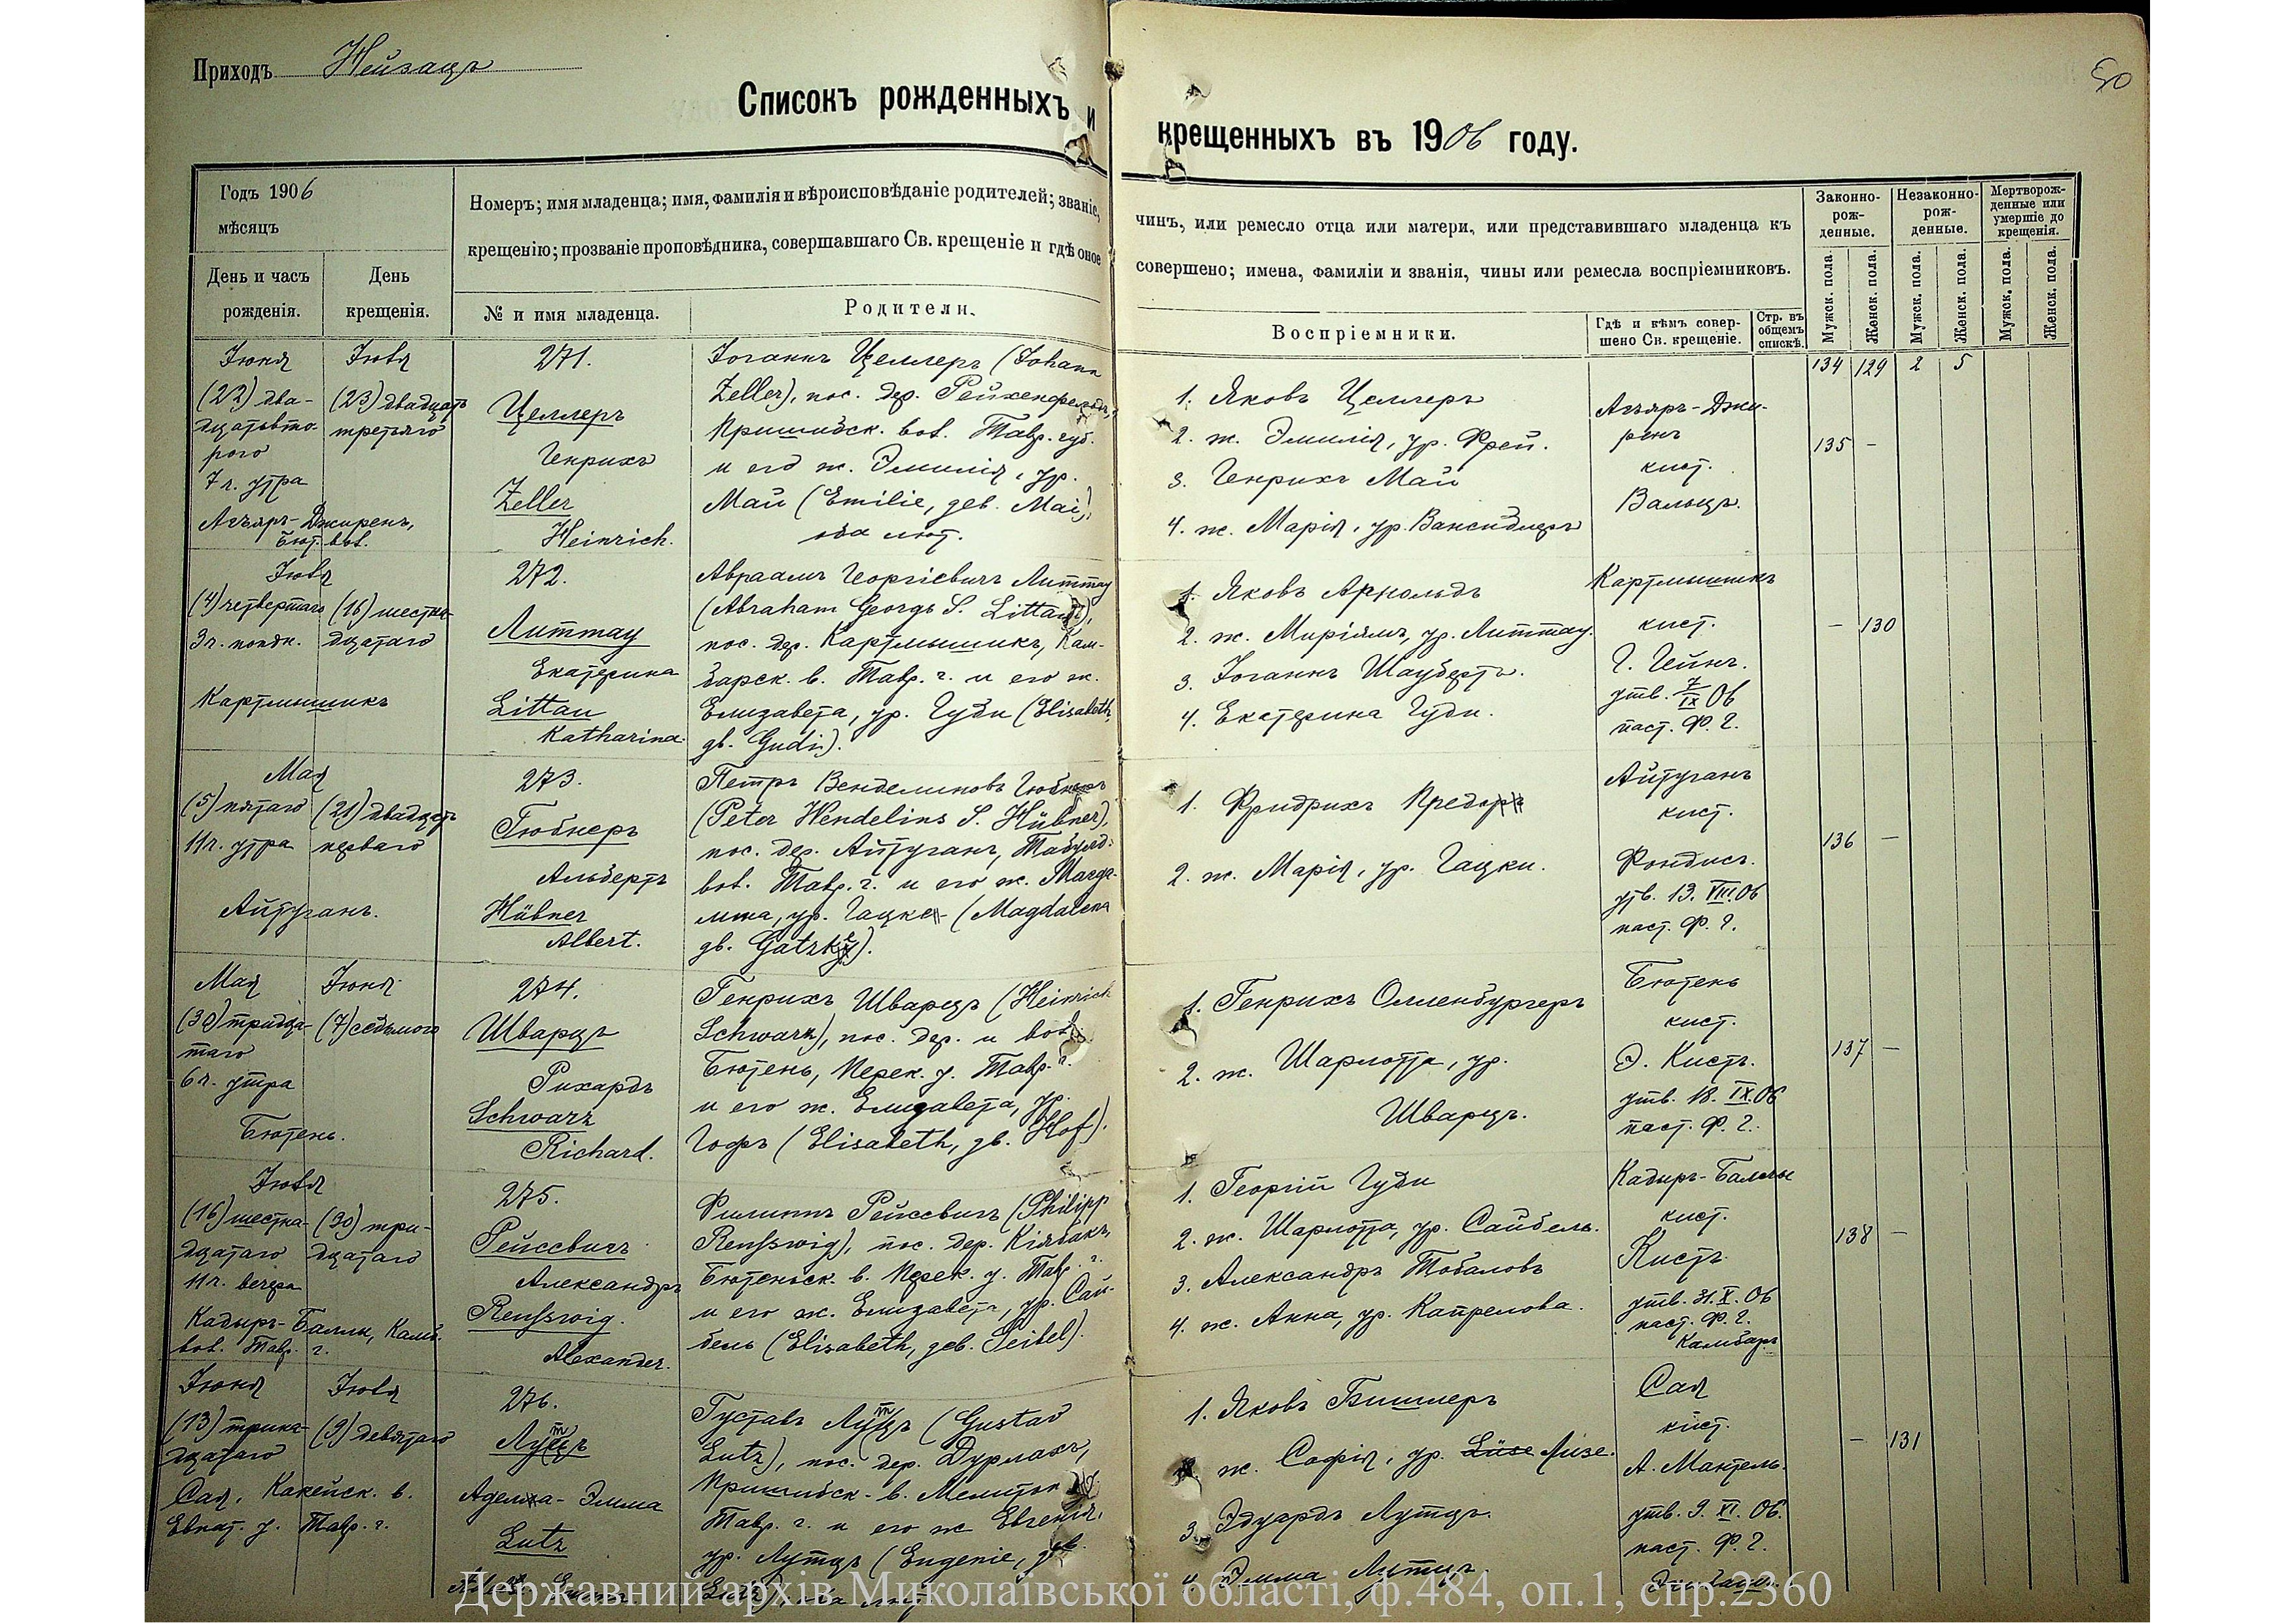 Приходъ Нейзацъ
50
Списокъ рожденныхъ и крещенныхъ въ 1906 году.
Годъ 1906
мѣсяцъ
День и часъ рожденія.
День крещенія.
Номеръ; имя младенца; имя, фамилія и вѣроисповѣданіе родителей; званіе, чинъ, или ремесло отца или матери, или представившаго младенца къ
крещенію; прозваніе проповѣдника, совершавшаго Св. крещеніе и гдѣ оное совершено; имена, фамиліи и званія, чины или ремесла воспріемниковъ.
№ и имя младенца.
Родители.
Воспріемники.
Гдѣ и кѣмъ совер-
шено Св. крещеніе.
Стр. въ
общемъ
спискѣ.
Законно-
рож-
денные.
Незаконно-
рож-
денные.
Мертворож-
денные или
умершіе до
крещенія.
Мужск. пола.
Женск. пола.
Мужск. пола.
Женск. пола.
Мужск. пола.
Женск. пола.
134 129 2 5
Іюня
(22) два-
дцатьвто-
рого
7 ч. утра
Агъяръ-Джиренъ,
Бют. вол.
Іюля
(23) двадцать
третьяго
271.
Целлеръ
Генрихъ
Zeller
Heinrich.
Іоганнъ Целлеръ (Johann
Zeller), пос. дер. Рейхенфельдъ,
Пришибск. вол. Тавр. губ.
и его ж. Эмилія, ур.
Май (Emilie, geb. Mai),
оба лют.
1. Яковъ Целлеръ
2. ж. Эмилія, ур. Фрей.
3. Генрихъ Май
4. ж. Марія, ур. Вансидлеръ
Агъяръ-Джи-
ренъ
кист.
Вальцъ.
135 -
Іюля
(4) четвертаго
3 ч. попдн.
Картмышикъ
(16) шестна-
дцатаго
272.
Литтау
Екатерина
Littau
Katharina.
Авраамъ Георгіевичъ Литтау
(Abraham Georgs S. Littau),
пос. дер. Картмышикъ, Кам-
барск. в. Тавр. г. и его ж.
Елизавета, ур. Гуди (Elisabeth,
gb. Gudi).
1. Яковъ Арнольдъ
2. ж. Миріамъ, ур. Литтау.
3. Іоганнъ Шаубертъ.
4. Екатерина Гуди.
Картмышикъ
кист.
Г. Гейнъ.
утв. 7/IX 06
паст. Ф. Г.
- 130
Мая
(5) пятаго
11 ч. утра
Айтуганъ.
(21) двадцать
перваго
273.
Гюбнеръ
Альбертъ
Hübner
Albert.
Петръ Венделиновъ Гюбнеръ
(Peter Wendelins S. Hübner),
пос. дер. Айтуганъ, Табулд.
вол. Тавр. г. и его ж. Магда-
лина, ур. Гацке (Magdalena
gb. Gatzke).
1. Фридрихъ Предо
2. ж. Марія, ур. Гацки.
Айтуганъ
кист.
Фондисъ.
утв. 13. VIII. 06
паст. Ф. Г.
136 -
Мая
(30) тридца-
таго
6 ч. утра
Бютень.
Іюня
(7) седьмого
274.
Шварцъ
Рихардъ
Schwarz
Richard.
Генрихъ Шварцъ (Heinrich
Schwarz), пос. дер. и вол.
Бютень, Перек. у. Тавр. г.
и его ж. Елизавета, ур.
Гофъ (Elisabeth, gb. Hof).
1. Генрихъ Олленбургеръ
2. ж. Шарлотта, ур.
Шварцъ.
Бютень
кист.
Э. Кистъ.
утв. 18. IX. 06
паст. Ф. Г.
137 -
Іюля
(16) шестна-
дцатаго
11 ч. вечера
Кадыръ-Баллы, Камб.
вол. Тавр. г.
(30) три-
дцатаго
275.
Рейссвигъ
Александръ
Rensswig.
Alexander.
Филиппъ Рейссвигъ (Philipp
Rensswig), пос. дер. Кіябакъ,
Бютеньск. в. Перек. у. Тавр. г.
и его ж. Елизавета, ур. Сай-
бель (Elisabeth, geb. Seibel).
1. Георгій Гуди
2. ж. Шарлотта, ур. Сайбель.
3. Александръ Тобаловъ
4. ж. Анна, ур. Капрелова.
Кадыръ-Баллы
кист.
Кистъ
утв. 31. X. 06
паст. Ф. Г.
Камбар.
138 -
Іюня
(13) трина-
дцатаго
Сая, Какейск. в.
Евпат. у. Тавр. г.
Іюля
(9) девятаго
276.
Лутцъ
Аделла-Эмма
Lutz
Густавъ Лутцъ (Gustav
Lutz), пос. дер. Дурлахъ,
Пришибск. в. Мелитоп. у.
Тавр. г. и его ж Евгенія,
ур. Лутцъ (Eugenie, geb.
1. Яковъ Бишлеръ
ж. Софія, ур. Lüse Лизе.
3. Эдуардъ Лутцъ.
4. Эмма Лутцъ.
Сая
кист.
А. Мантель.
утв. 9. XI. 06.
паст. Ф. Г.
- 131
Державний архів Миколаївської області, ф.484, оп.1, спр.2360